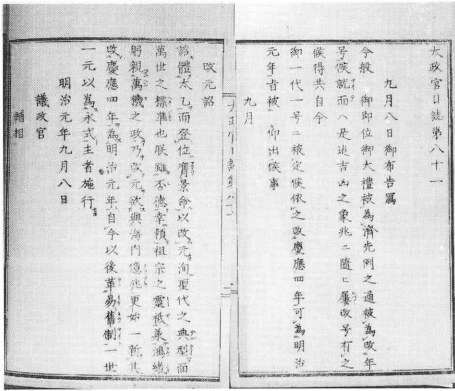 太政官日誌第八十一
九月八日御布告寫
今般 御即位御大禮被為濟先例之通被為改年
号候就而ハ是迄吉凶之象兆ニ隨ヒ屢改号有之
候得共自今
御一代一号ニ被定候依之改慶應四年可為明治
元年旨被 仰出候事
九月
改元詔
詔體太乙而登位膺景命以改元洵聖代之典型而
萬世之標準也朕雖否德幸頼祖宗之靈祇承鴻緒
躬親萬機之政乃改元欲與海内億兆更始一新其
改慶應四年為明治元年自今以後革易舊制一世
一元以為永式主者施行
明治元年九月八日
議政官
輔相